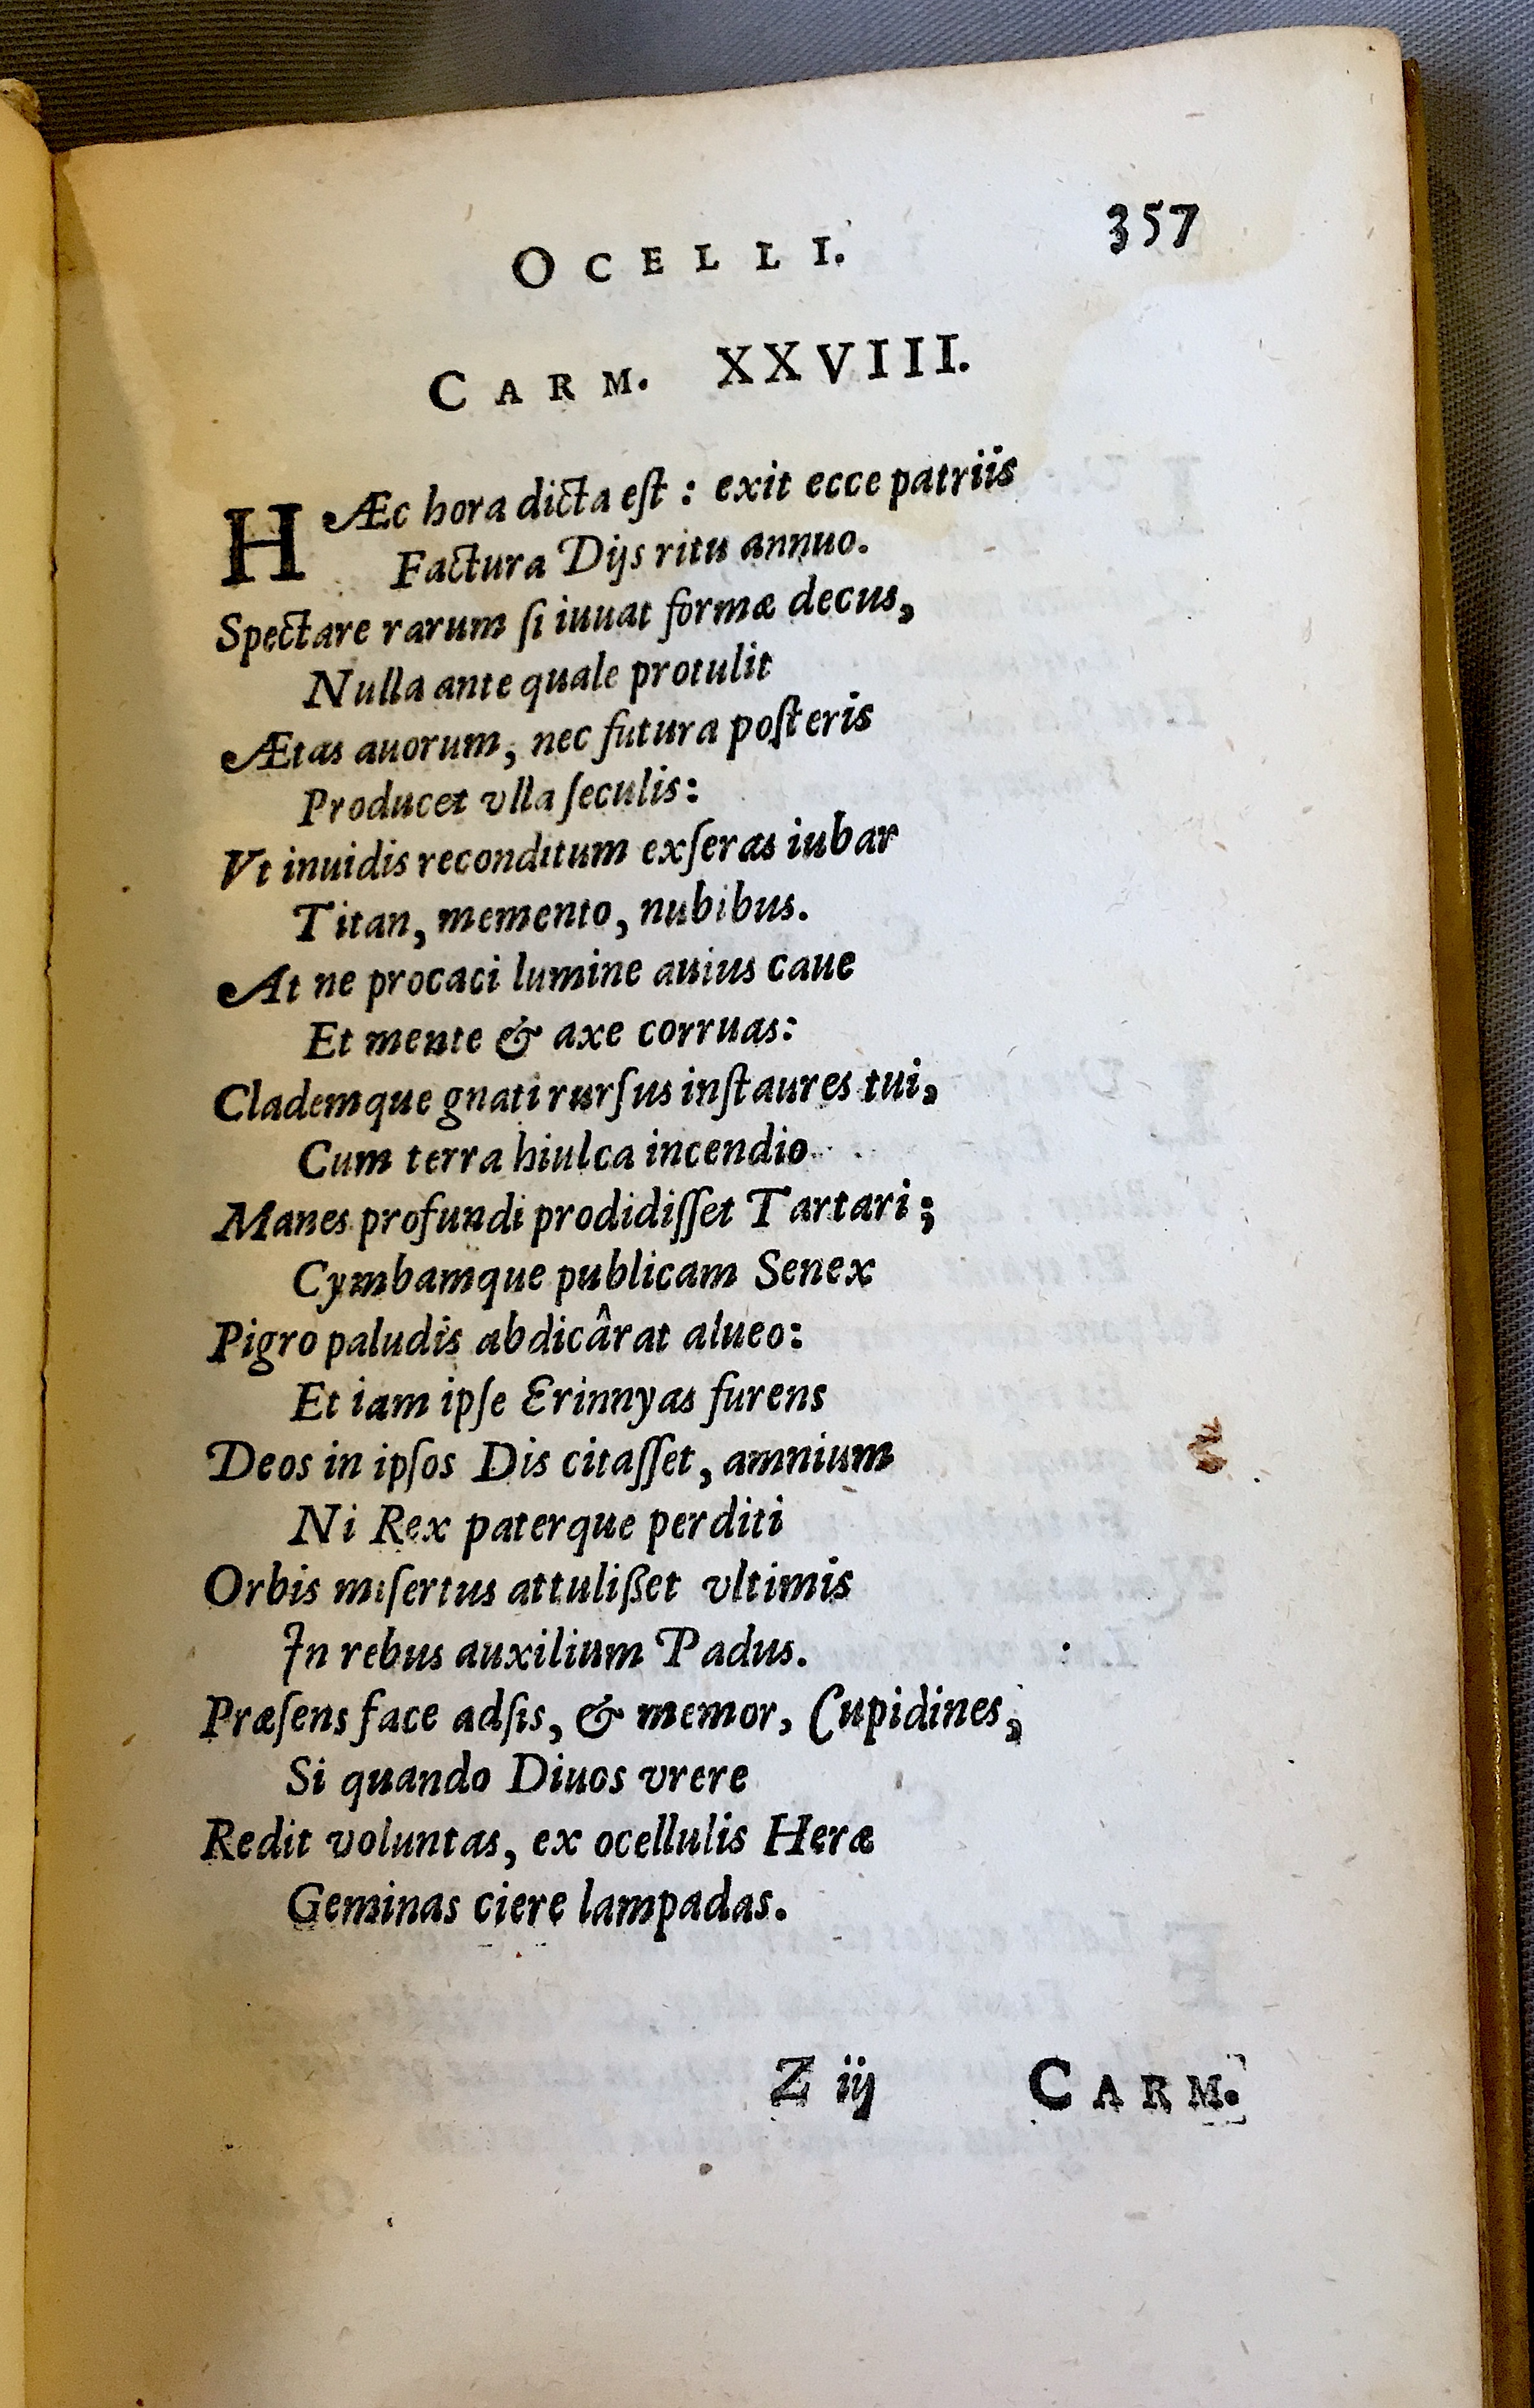 OCELLI. 357
CARM. XXVIII.
HÆc hora dicta eſt : exit ecce patriis
Factura Dijs ritu annuo.
Spectare rarum ſi iuuat formæ decus,
Nulla ante quale protulit
Ætas auorum, nec futura poſteris
Producet vlla ſeculis:
Vt inuidis reconditum exſeras iubar
Titan, memento, nubibus.
At ne procaci lumine auius caue
Et mente & axe corruas:
Clademque gnati rurſus inſtaures tui,
Cum terra hiulca incendio
Manes profundi prodidiſſet Tartari;
Cymbamque publicam Senex
Pigro paludis abdicârat alueo:
Et iam ipſe Erinnyas furens
Deos in ipſos Dis citaſſet, amnium
Ni Rex paterque perditi
Orbis miſertus attulißet vltimis
In rebus auxilium Padus.
Præſens face adſis, & memor, Cupidines,
Si quando Diuos vrere
Redit voluntas, ex ocellulis Heræ
Geminas ciere lampadas.
Z iij CARM.